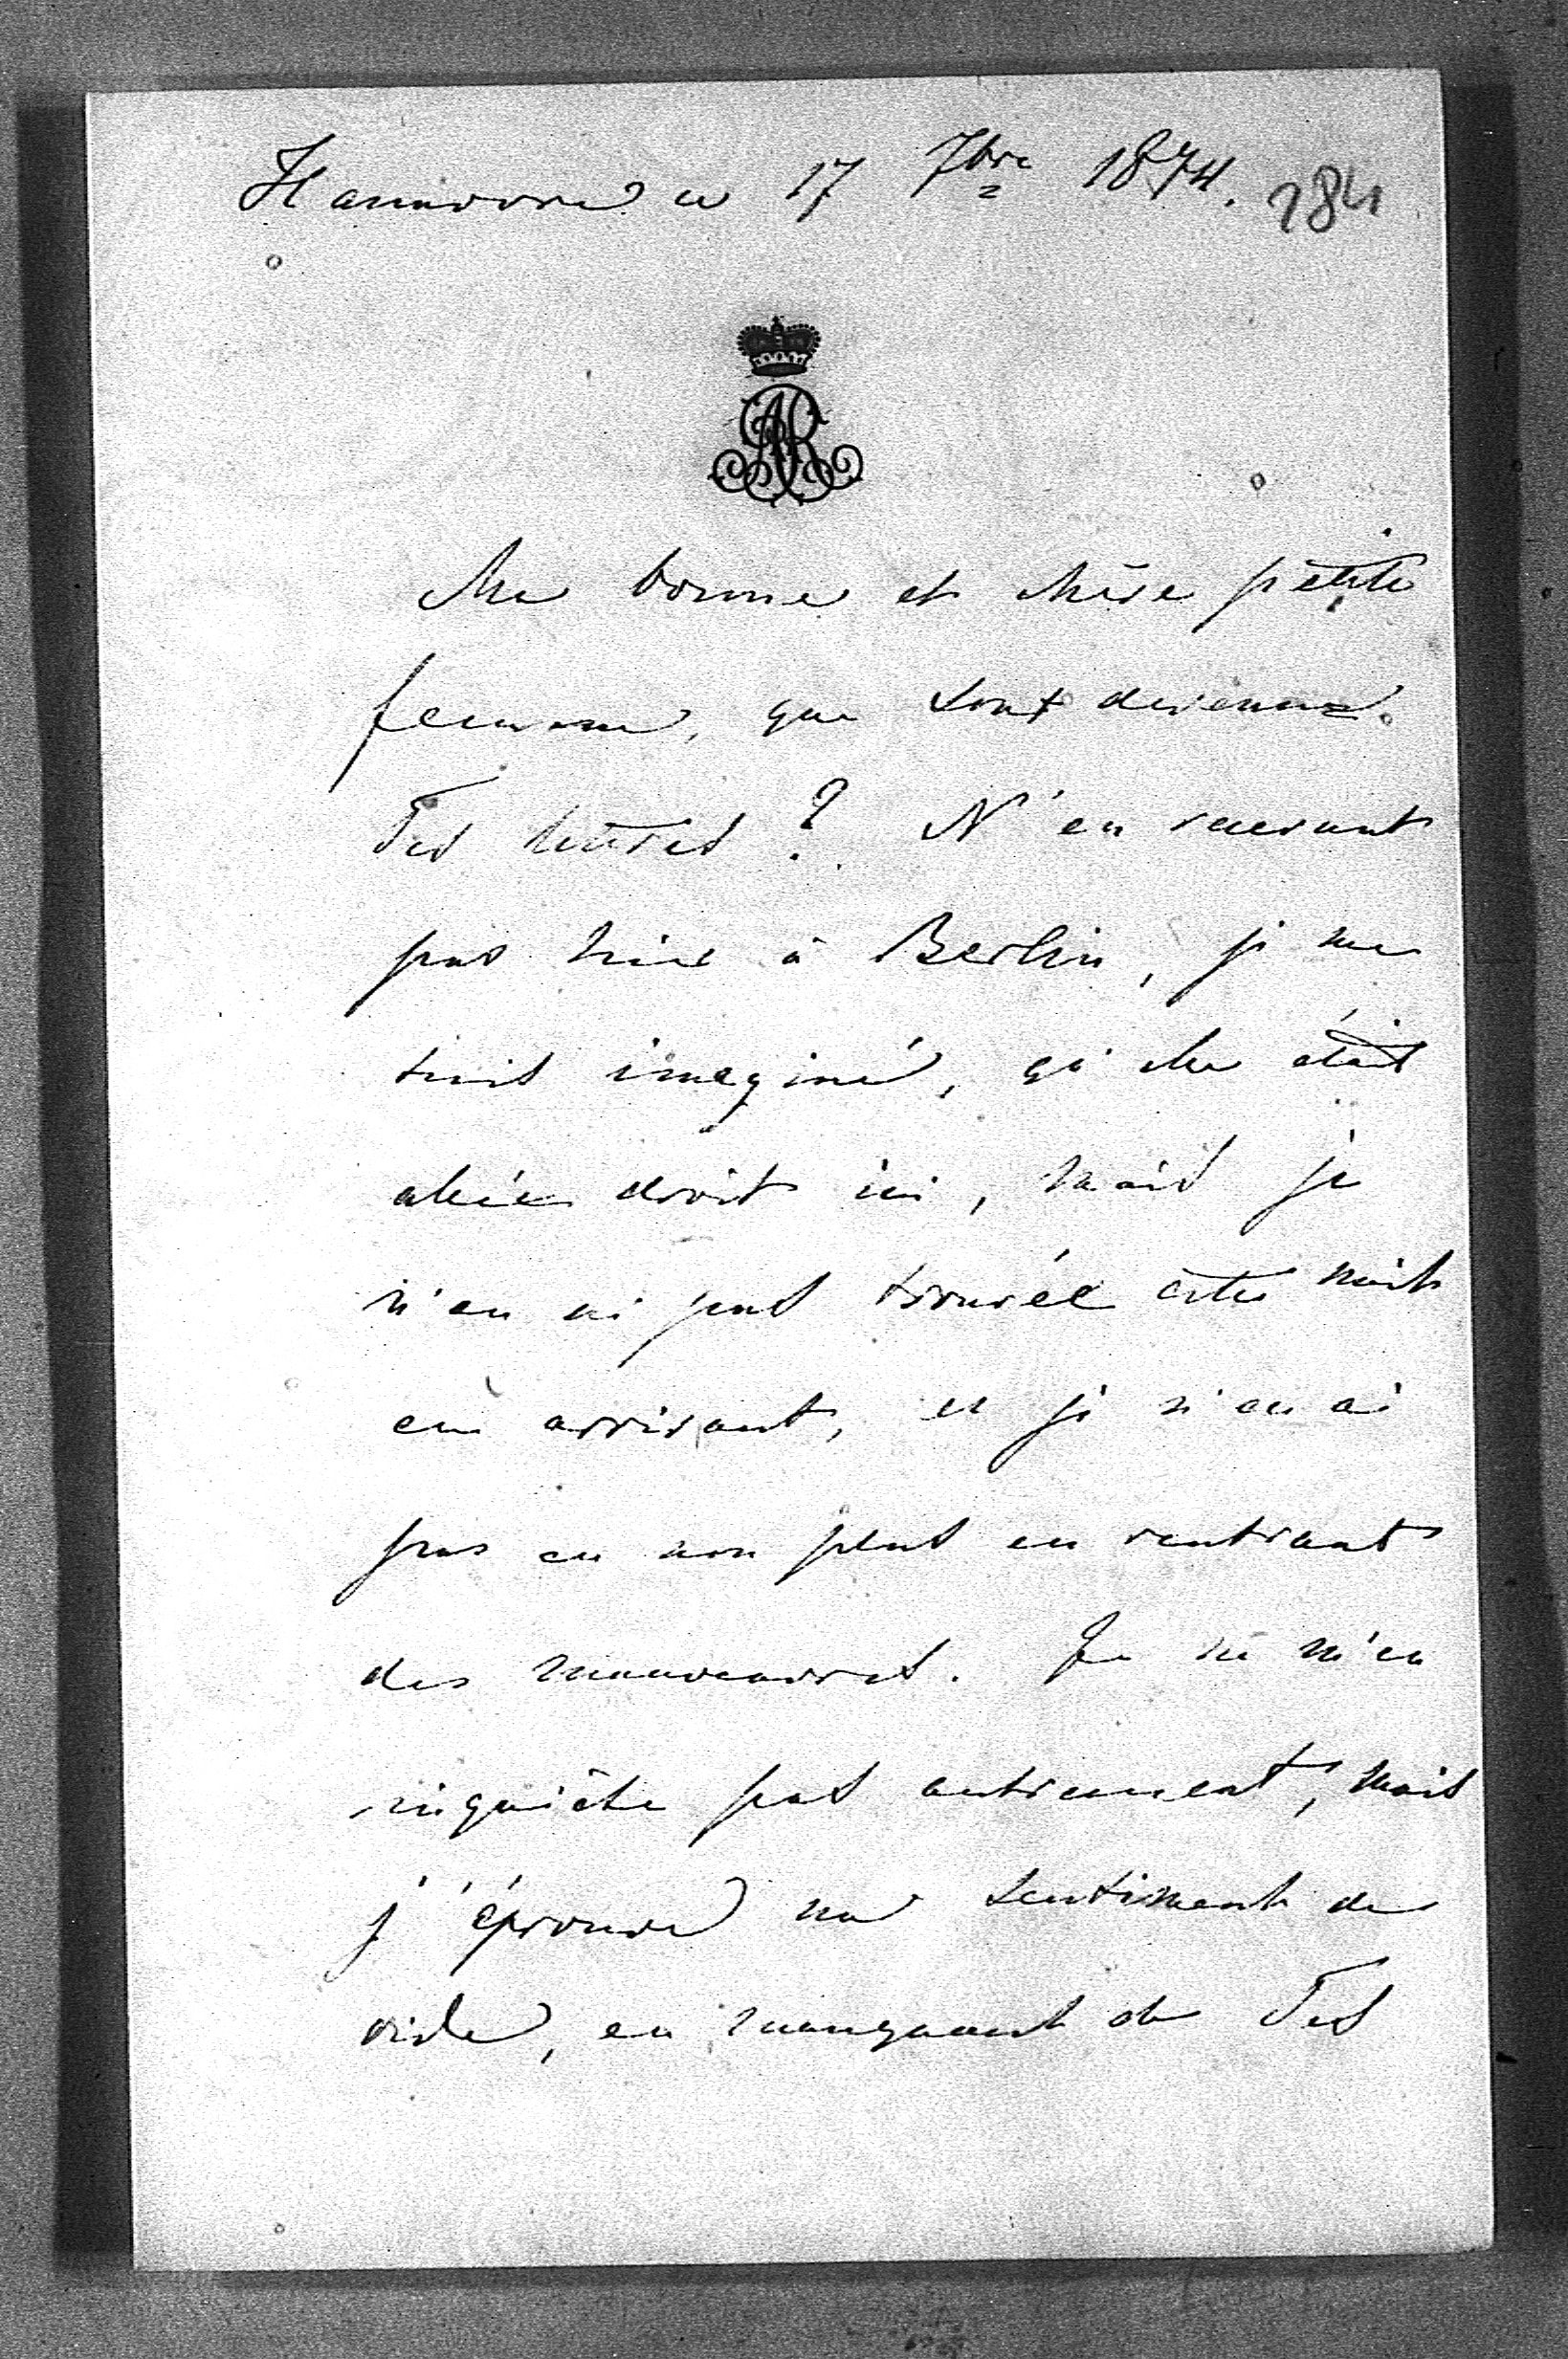 Hannovre ce 17 7bre 1874. 184
AR
Ma bonne et chère petite
femme, que sont devenues
Tes lettres? N'en recevant
pas hier à Berlin, je me
suis imaginé, qu'elle était
allée droit ici, mais je
n'en ai pas trouvée cette nuit
en arrivant, et je n'en ai
pas eu non plus en rentrant
des manoeuvres. Je ne m'en
inquiète pas autrement, mais
j'éprouve un sentiment de
vide, en manquant de Tes